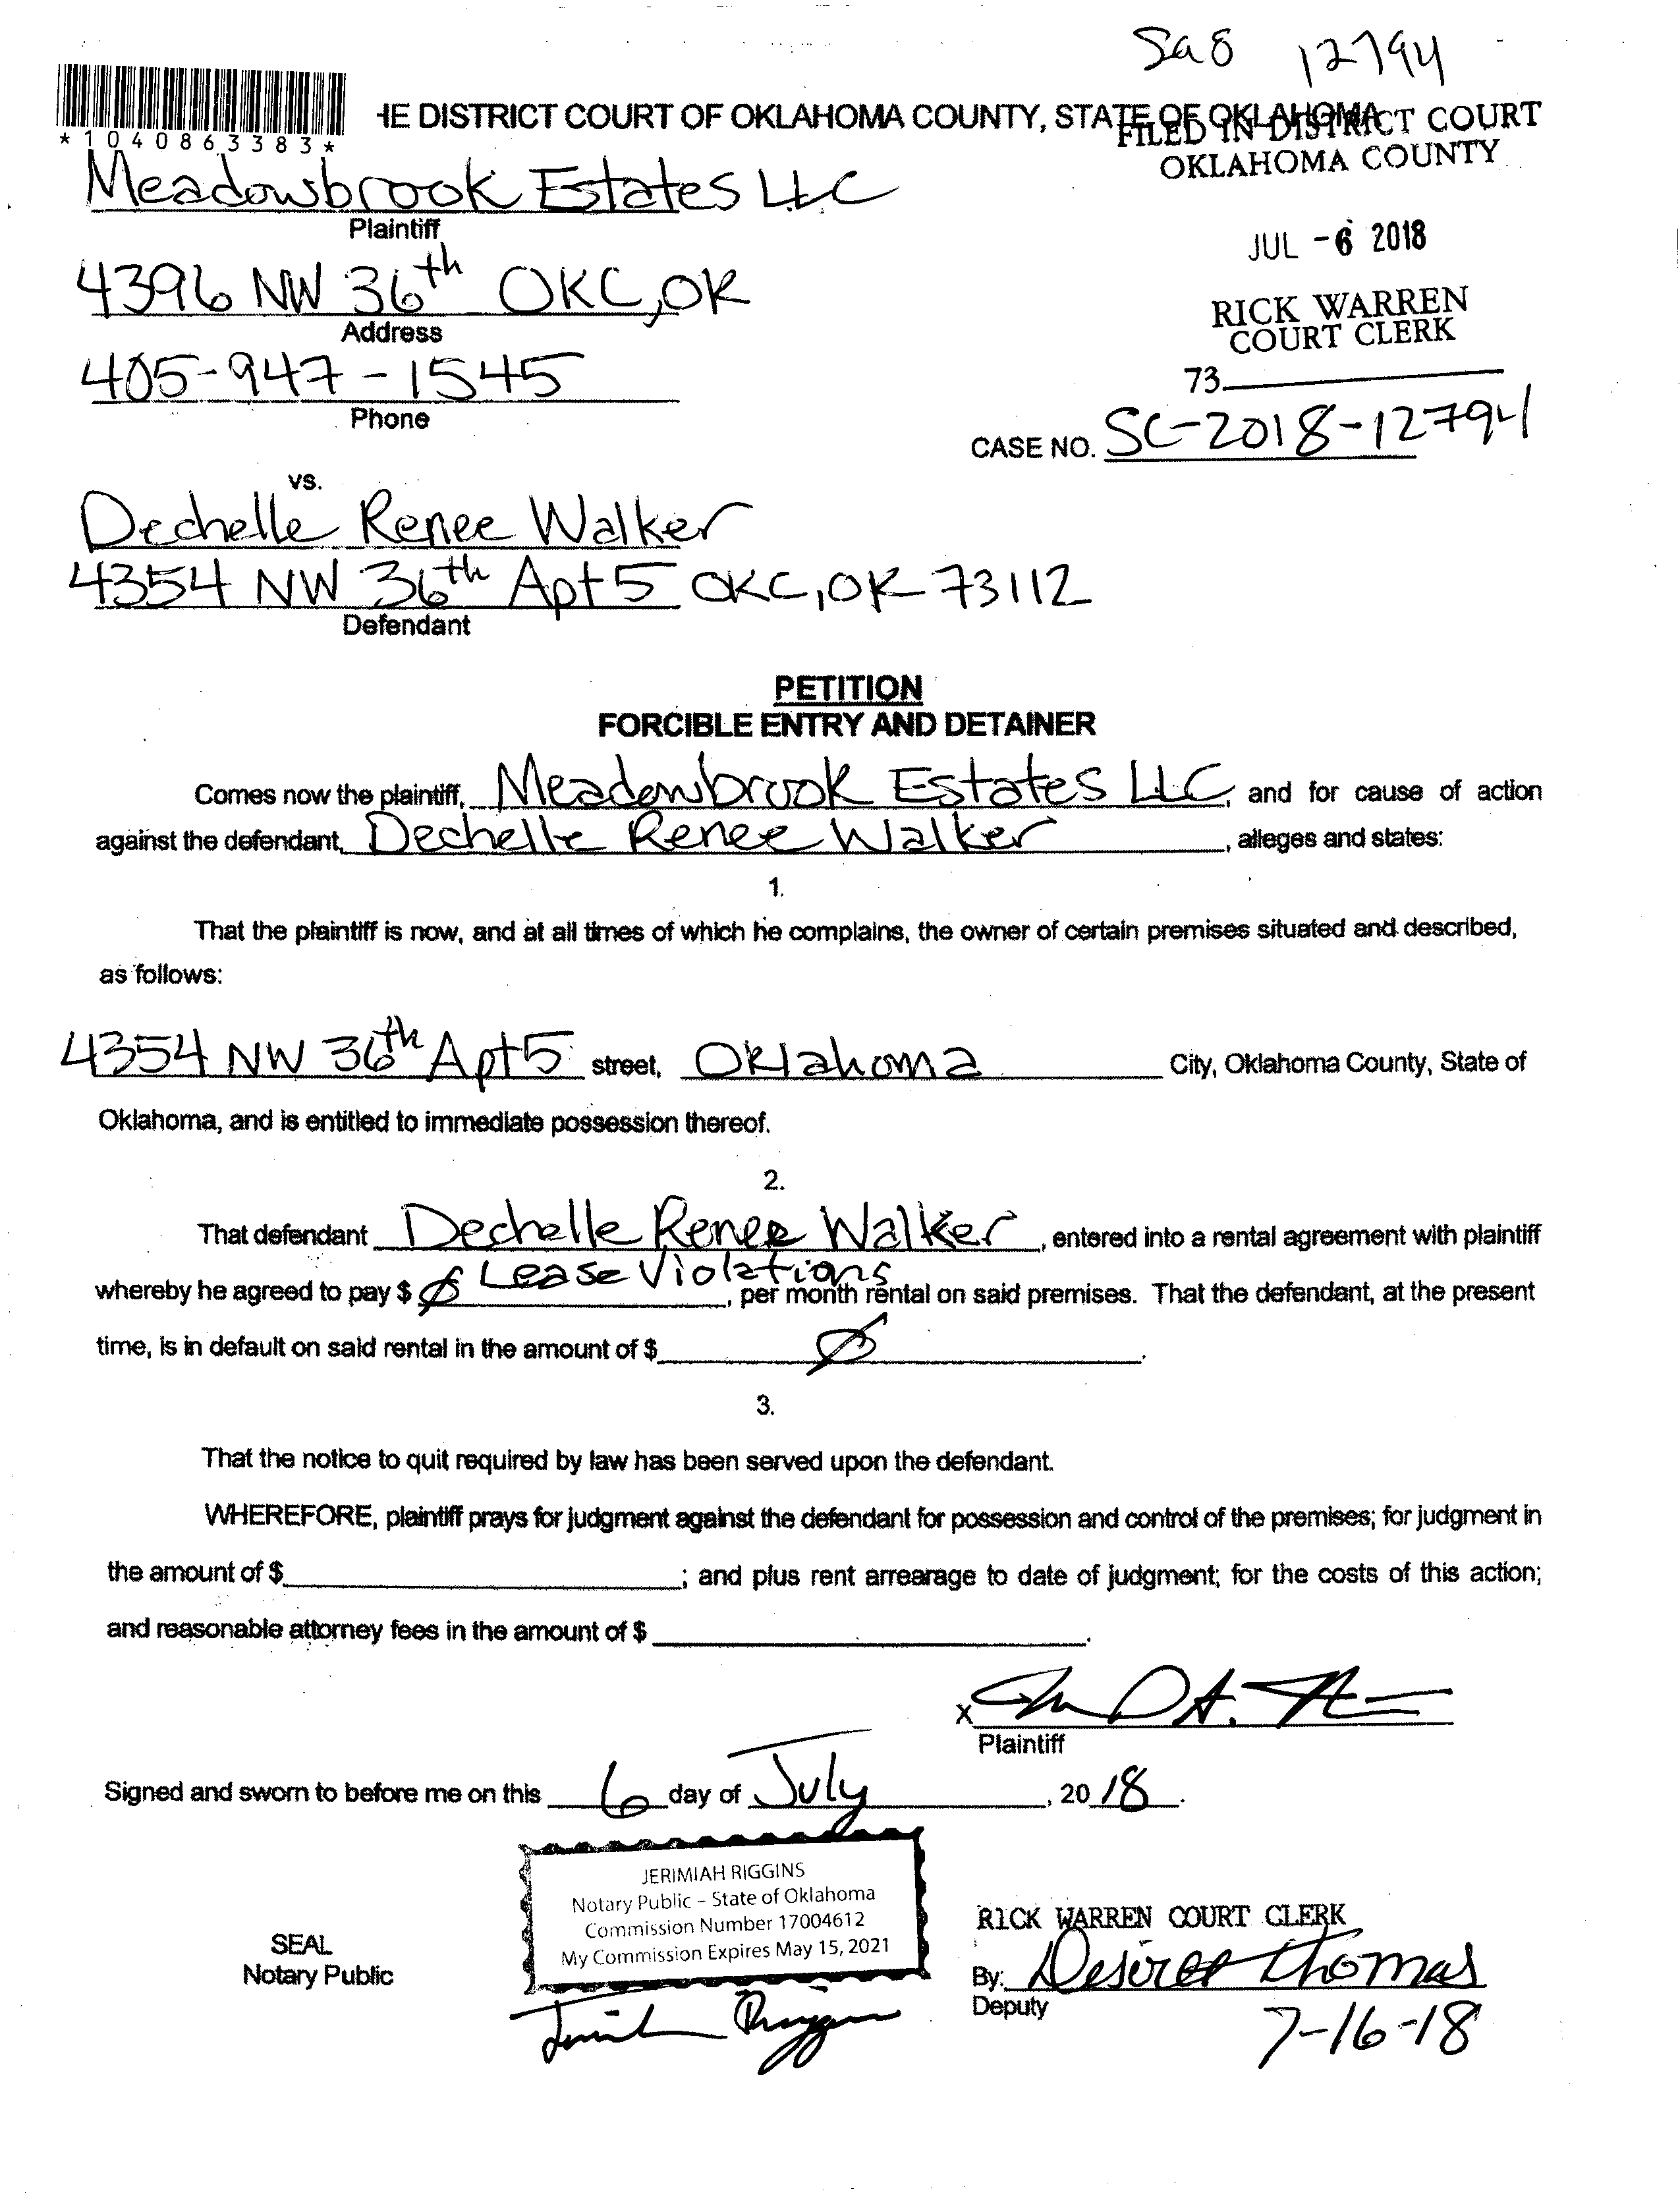 Sa8 12794
*1040863383*
HE DISTRICT COURT OF OKLAHOMA COUNTY, STATE OF OKLAHOMA
FILED IN DISTRICT COURT
OKLAHOMA COUNTY
Meadowsbrook Estates LLC
Plaintiff
JUL -6 2018
4396 NW 36th OKC, OK
Address
RICK WARREN
COURT CLERK
405-947-1545
Phone
73
CASE NO. SC-2018-12794
vs.
Dechelle Renee Walker
4354 NW 36th Apt 5 OKC, OK 73112
Defendant
PETITION
FORCIBLE ENTRY AND DETAINER
Comes now the plaintiff, Meadowbrook Estates LLC, and for cause of action
against the defendant, Dechelle Renee Walker, alleges and states:
1.
That the plaintiff is now, and at all times of which he complains, the owner of certain premises situated and described,
as follows:
4354 NW 36th Apt 5 street, Oklahoma City, Oklahoma County, State of
Oklahoma, and is entitled to immediate possession thereof.
2.
That defendant Dechelle Renee Walker, entered into a rental agreement with plaintiff
whereby he agreed to pay $ Ø Lease Violations, per month rental on said premises. That the defendant, at the present
time, is in default on said rental in the amount of $ Ø.
3.
That the notice to quit required by law has been served upon the defendant.
WHEREFORE, plaintiff prays for judgment against the defendant for possession and control of the premises; for judgment in
the amount of $ ; and plus rent arrearage to date of judgment; for the costs of this action;
and reasonable attorney fees in the amount of $ .
X
Plaintiff
Signed and sworn to before me on this 6 day of July, 20 18.
JERIMIAH RIGGINS
Notary Public – State of Oklahoma
Commission Number 17004612
My Commission Expires May 15, 2021
SEAL
Notary Public
RICK WARREN COURT CLERK
By: Desiree Thomas
Deputy
7-16-18